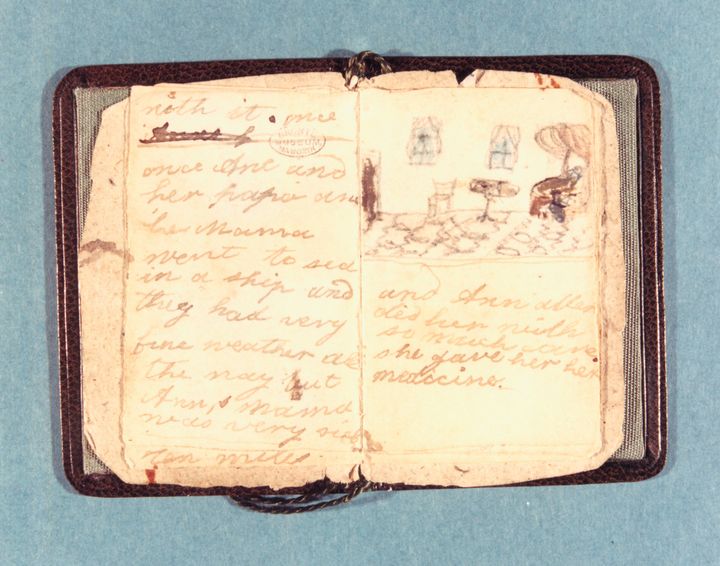 with it once
BRONTË
MUSEUM
HAWORTH
once Ane and
her papa and
her Mama
went to sea
in a ship and
they had very
fine weather all
the way but
Ann,s Mama
was very sick
and Ann atten
ded her with
so much care
she gave her her
medicine.